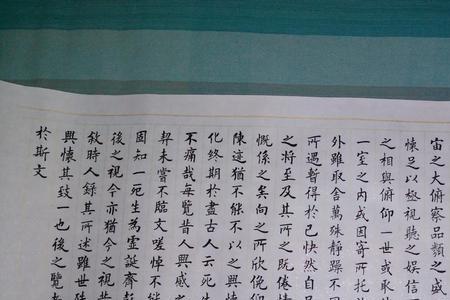 宙之大俯察品類之盛
懷足以極視聽之娛信
之相與俯仰一世或取
一室之內或因寄所托
外雖取舍萬殊靜躁不
所遇暫得於己快然自
之將至及其所之既倦情
慨係之矣向之所欣俛仰
陳迹猶不能不以之興懷
化終期於盡古人云死生
不痛哉每覽昔人興感之
契未嘗不臨文嗟悼不能
固知一死生為虛誕齊
後之視今亦猶今之視
敘時人錄其所述雖世殊
興懷其致一也後之覽者
於斯文